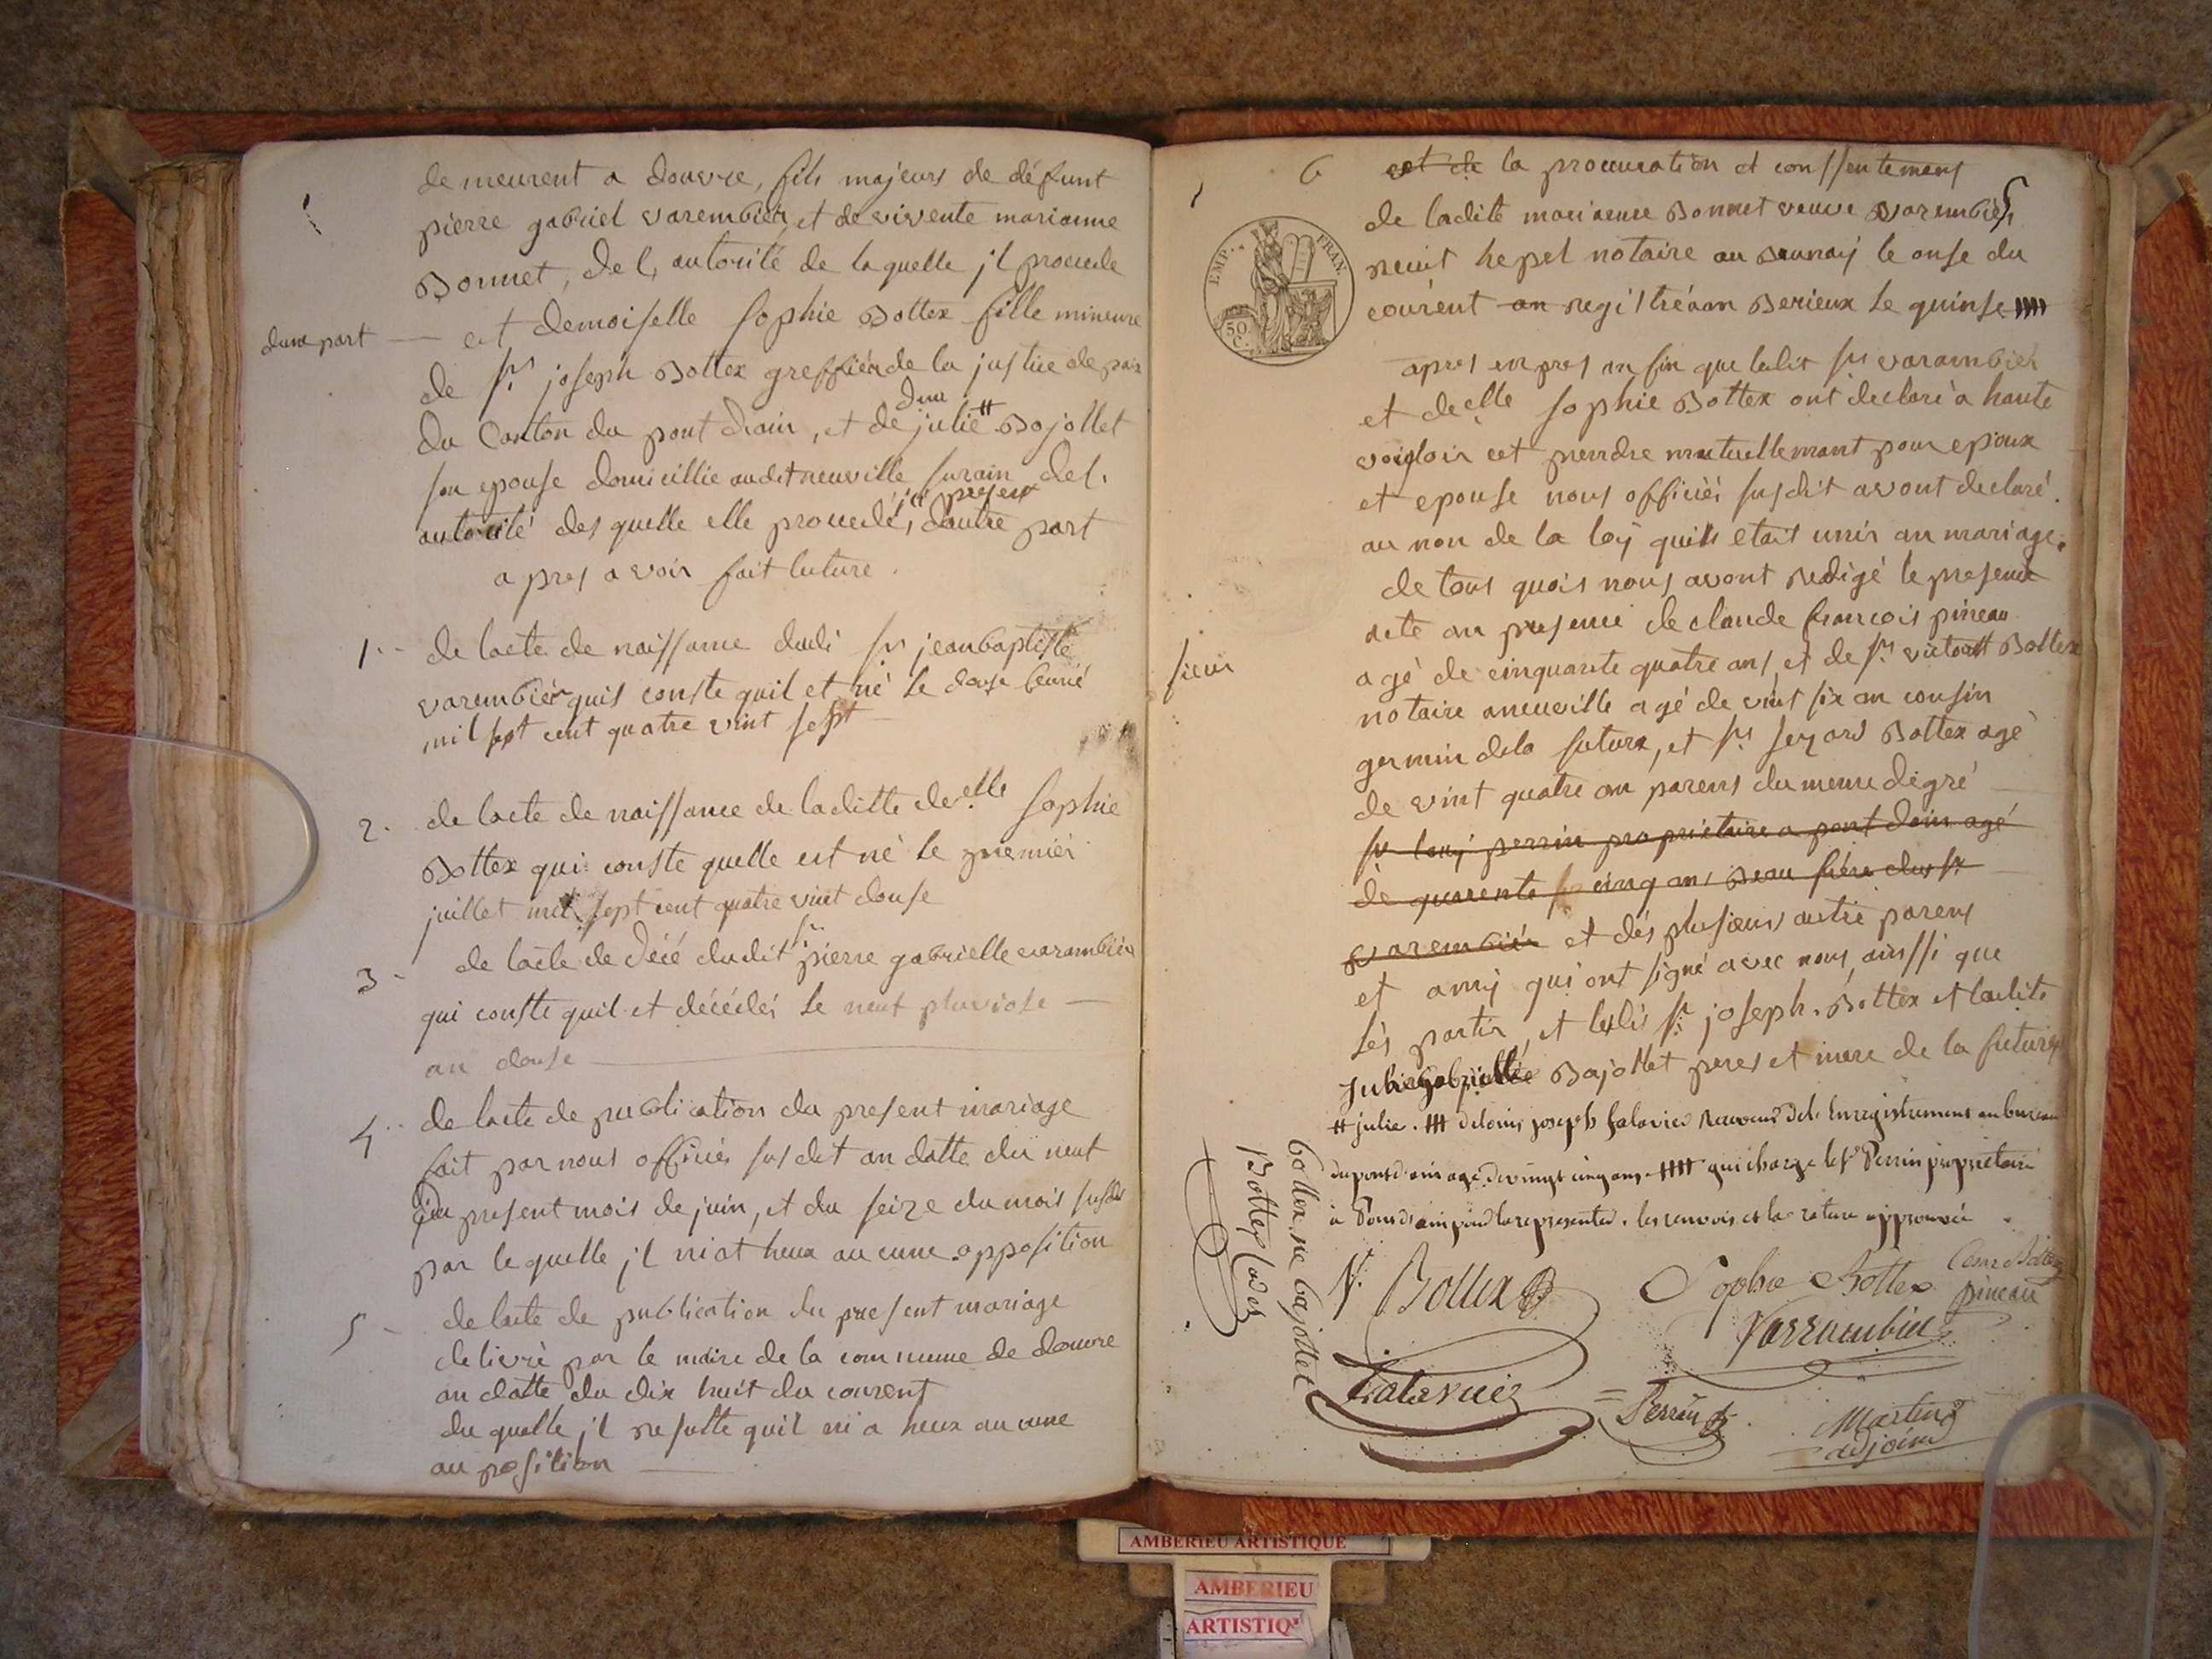 demeurent a douvre, fils majeurs de défunt
pierre gabriel varembier, et de vivente marianne
Bonnet, de l, autorité de laquelle jl procede
dune part — et demoiselle sophie Bottex fille mineure
de Sr. joseph Bottex greffier de la justice de paix
du Canton du pont dain, et de dme julie # Bojollet
son epouse domicillie audit neuville sur ain de l.
autorité des quelle elle procede, ici presens dautre part
apres avoir fait luture.
1.- de lacte de naissance dudi sr jean baptiste
varembier quis conste quil et né le douse fevrié
mil sept cent quatre vint sept
2. de lacte de naissance de laditte delle sophie
Bottex qui conste quelle est né le premier
juillet mil sept cent quatre vint douse
3 - de lacte de décé dudit sr. pierre gabrielle varambier
qui conste quil et décédéi le neuf pluviose —
an douse
4.- de lacte de publication du present mariage
fait par nous officiés susdit an datte du neuf
du present mois de juin, et du seize du mois susdit
par le quelle jl niat heux aucune opposition
5 - de lacte de publication du present mariage
delivré par le maire de la commune de douvre
an datte du dix huit du courent
du quelle jl resulte quil ni a heux aucune
au position
6 et de la procuration et conssentement
de ladite marianne Bonnet veuve varembier
notaire au le onse du
courent an registré an Berieux le quinse ####
apres an fin que ledit sr varambier
et delle sophie Bottex ont declaré a haute
voigloir et prendre mutuellemant pour epoux
et epouse nous officiér susdit avont declaré.
au non de la loÿ quils etait unis an mariage.
de tous quois nous avont redigé le present
acte an presence de claude francois pineau
sieur agé de cinquante quatre ans, et de sr. victor # Bottex
notaire aneuville agé de vint six an cousin
germin dela future, et sr Bottex agé
de vint quatre an parens du meme degré
sr louj perrin proprietaire a pont dain agé
de quarente cinq ans Beau frère dus sr
varembier et dés plusieurs autre parens
et amij qui ont signé avec nous, ainssi que
lés partis, et lesdis sr. joseph. Bottex et ladite
Bajollet peres et mere de la future
# julie. ### delouis joseph falavier receveur de l. Enregistrement au bureau
du pont d'ain agé de vingt cinq ans. #### qui charge le sr Perrin proprietaire
a Pont d'ain pour le representer. les renvois et la rature approuvée
V. Bottex
Sophie Bottex
pineau
Varrambier
Bottex née bajollet
Bottex
Perrin
Martin
adjoint
EMP. FRAN.
50 C.
AMBERIEU ARTISTIQUE
AMBERIEU
ARTISTIQ